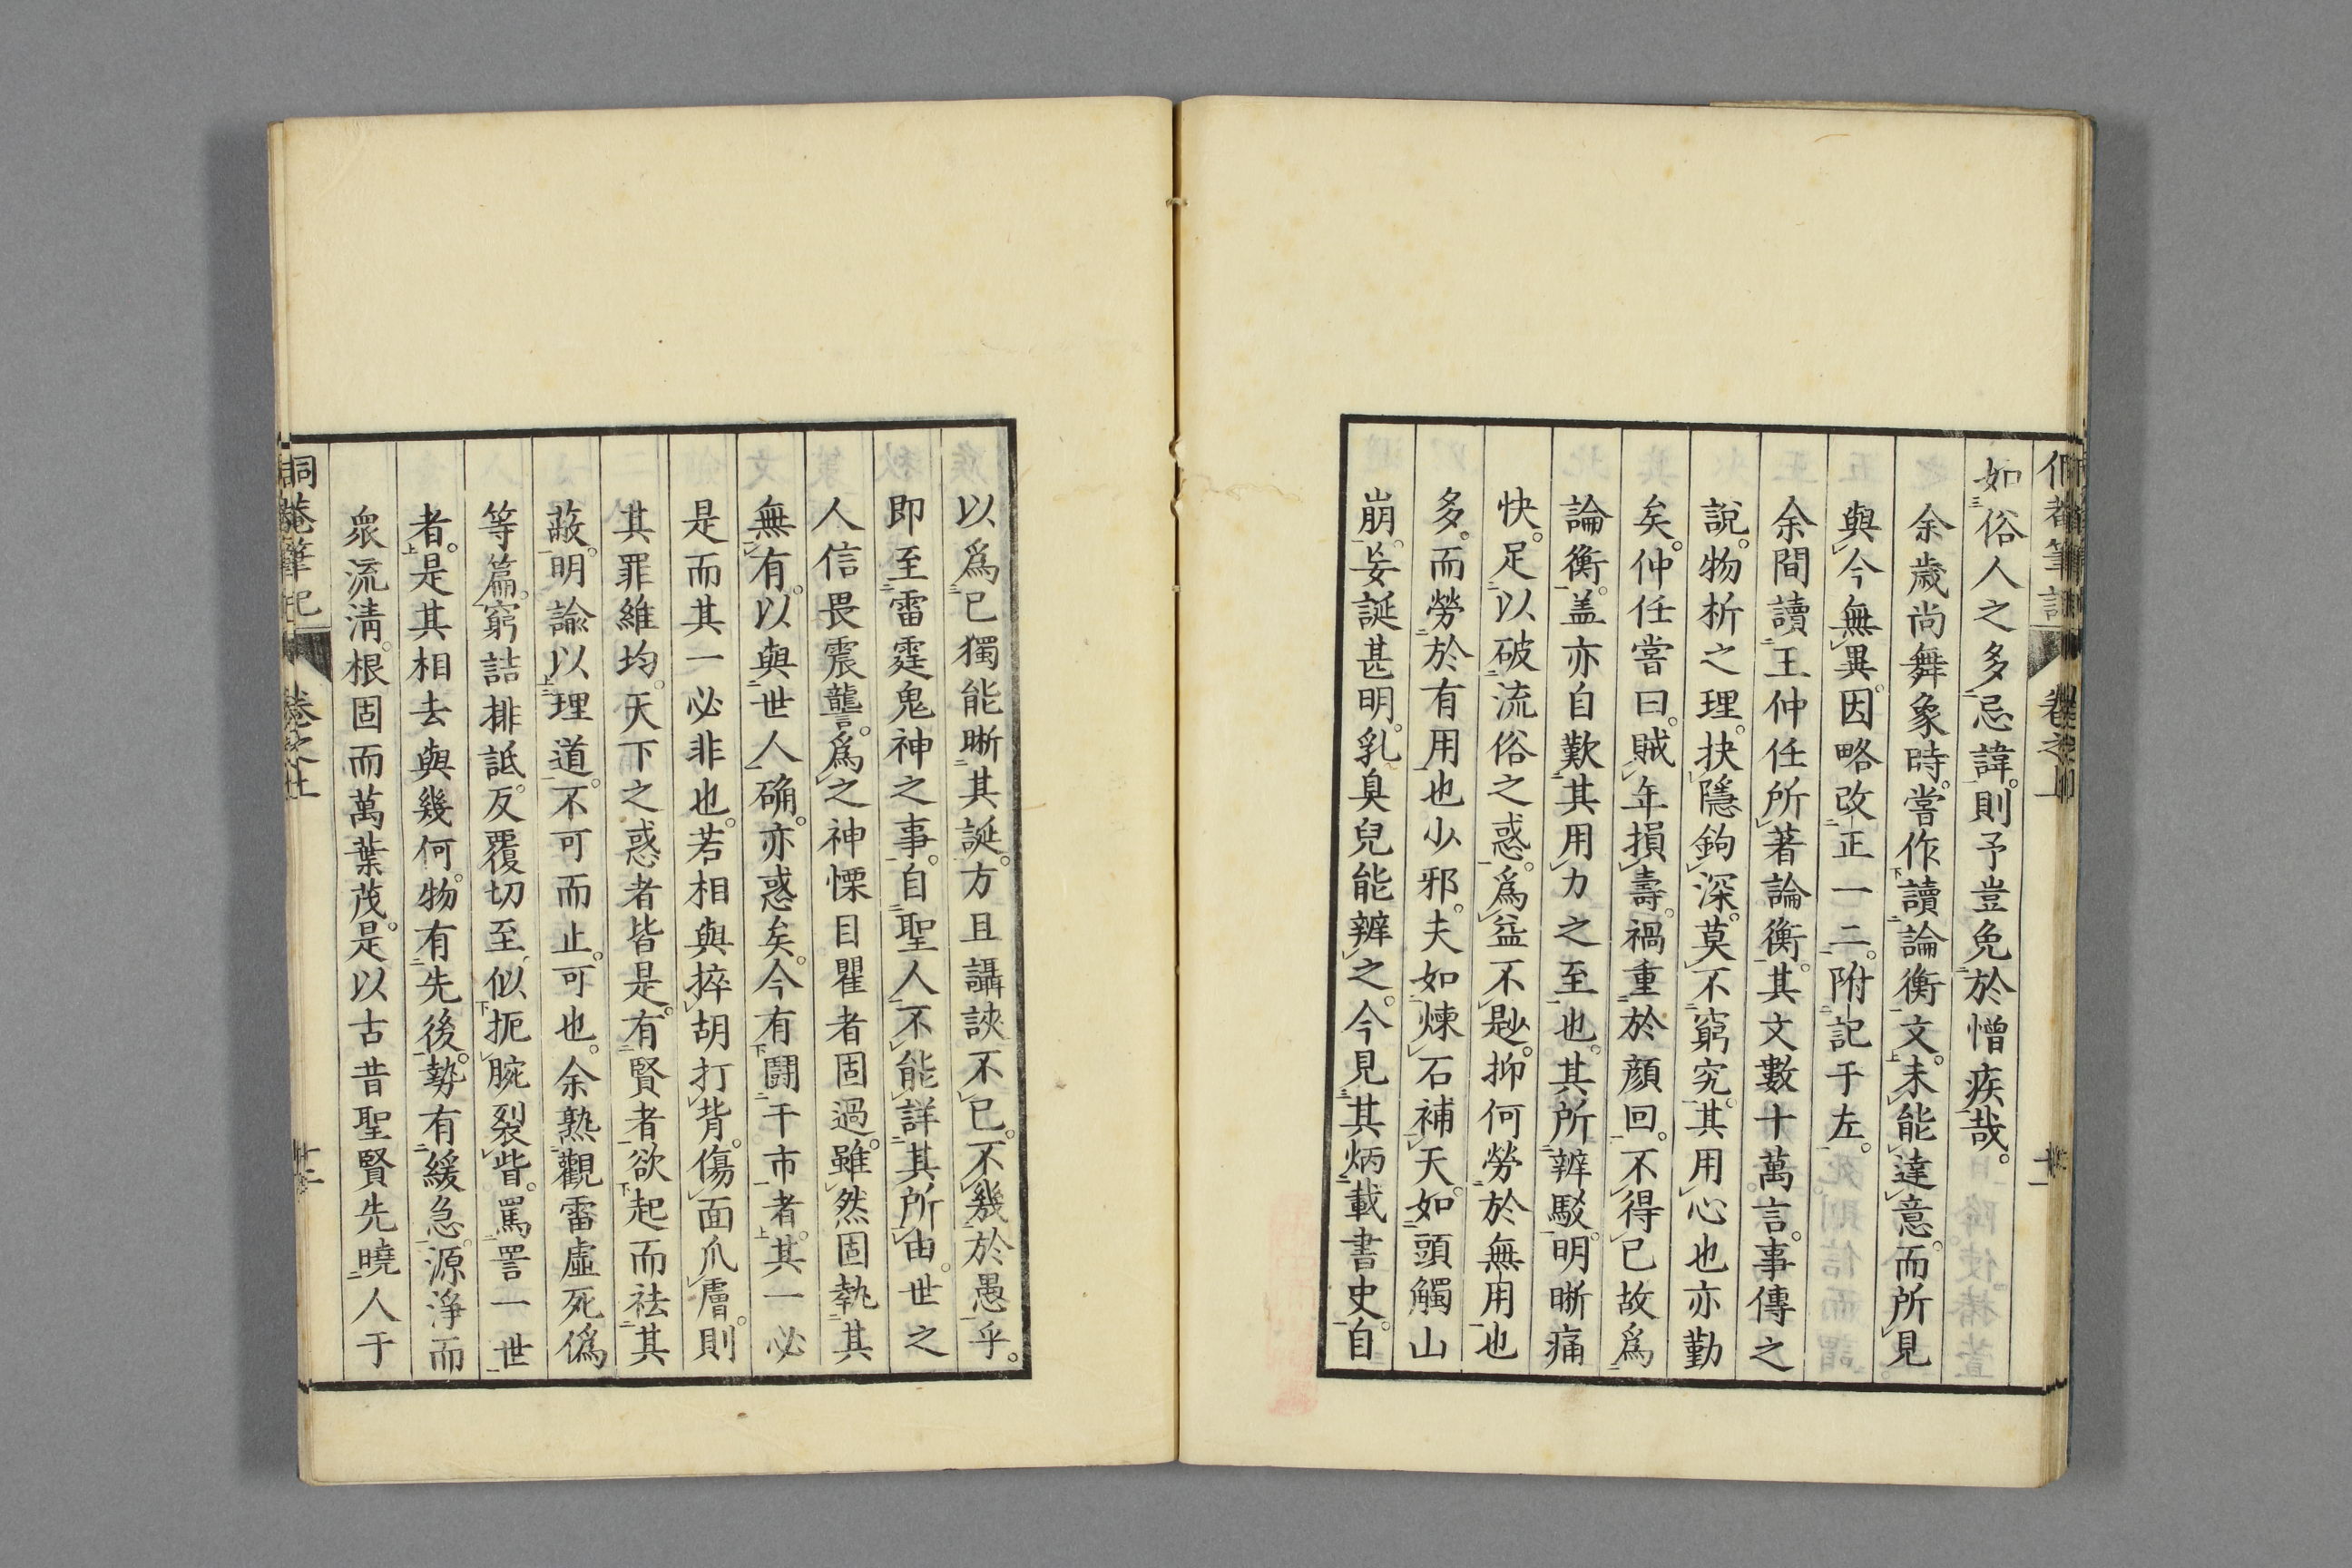 如俗人之多忌諱。則予豈免於憎疾哉。
余歲尚舞象時。嘗作讀論衡文。未能達意。而所見
與今無異。因略改正一二。附記于左。
余間讀王仲任所著論衡。其文數十萬言。事傳之
說。物析之理。抉隱鉤深。莫不窮究。其用心也亦勤
矣。仲任嘗曰。賊年損壽。禍重於顏回。不得已故爲
論衡。盖亦自歎其用力之至也。其所辨駁。明晰痛
快。足以破流俗之惑。爲益不尠。抑何勞於無用也
多。而勞於有用也少邪。夫如煉石補天。如頭觸山
崩。妄誕甚明。乳臭兒能辨之。今見其炳載書史。自
以爲已獨能晰其誕。方且讘諛不已。不幾於愚乎。
即至雷霆鬼神之事。自聖人不能詳其所由。世之
人信畏震讋。爲之神慄目瞿者固過。雖然固執其
無有。以與世人确。亦惑矣。今有鬪于市者。其一必
是而其一必非也。若相與捽胡打背。傷面爪膚。則
其罪維均。天下之惑者皆是。有賢者欲起而袪其
蔽。明諭以理道。不可而止。可也。余熟觀雷虛死僞
等篇。窮詰排詆。反覆切至。似扼腕裂眥。罵詈一世
者。是其相去與幾何。物有先後。勢有緩急。源淨而
衆流淸。根固而萬葉茂。是以古昔聖賢先曉人于
侗菴筆記
卷之上
十二